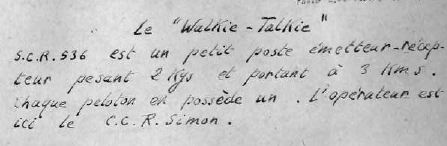 Le "Walkie-Talkie"
S.C.R. 536 est un petit poste émetteur-récep-
teur pesant 2 Kgs et portant à 3 Kms.
Chaque peloton en possède un. L'opérateur est
ici le C.C.R. Simon.